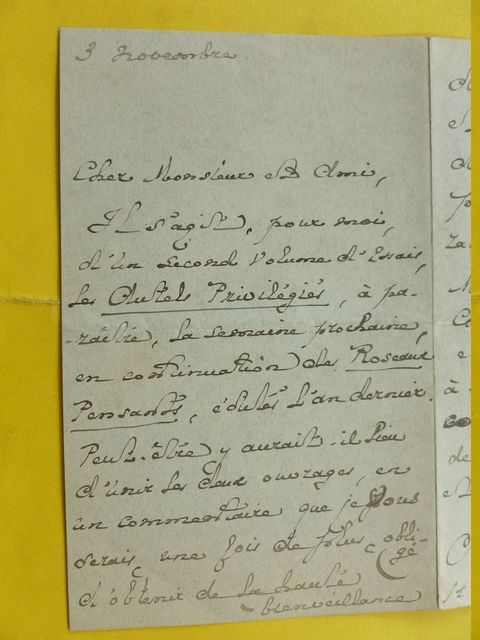 3 novembre
Cher Monsieur et Ami,
Il s'agit, pour moi,
d'un second volume d'Essais,
les Autels Privilégiés, à pa-
-raître, la semaine prochaine,
en continuation des Roseaux
Pensants, édités l'an dernier.
Peut-être y aurait-il lieu
d'unir les deux ouvrages, en
un commentaire que je vous
serais, une fois de plus, obli-
gé
d'obtenir de la haute
bienveillance